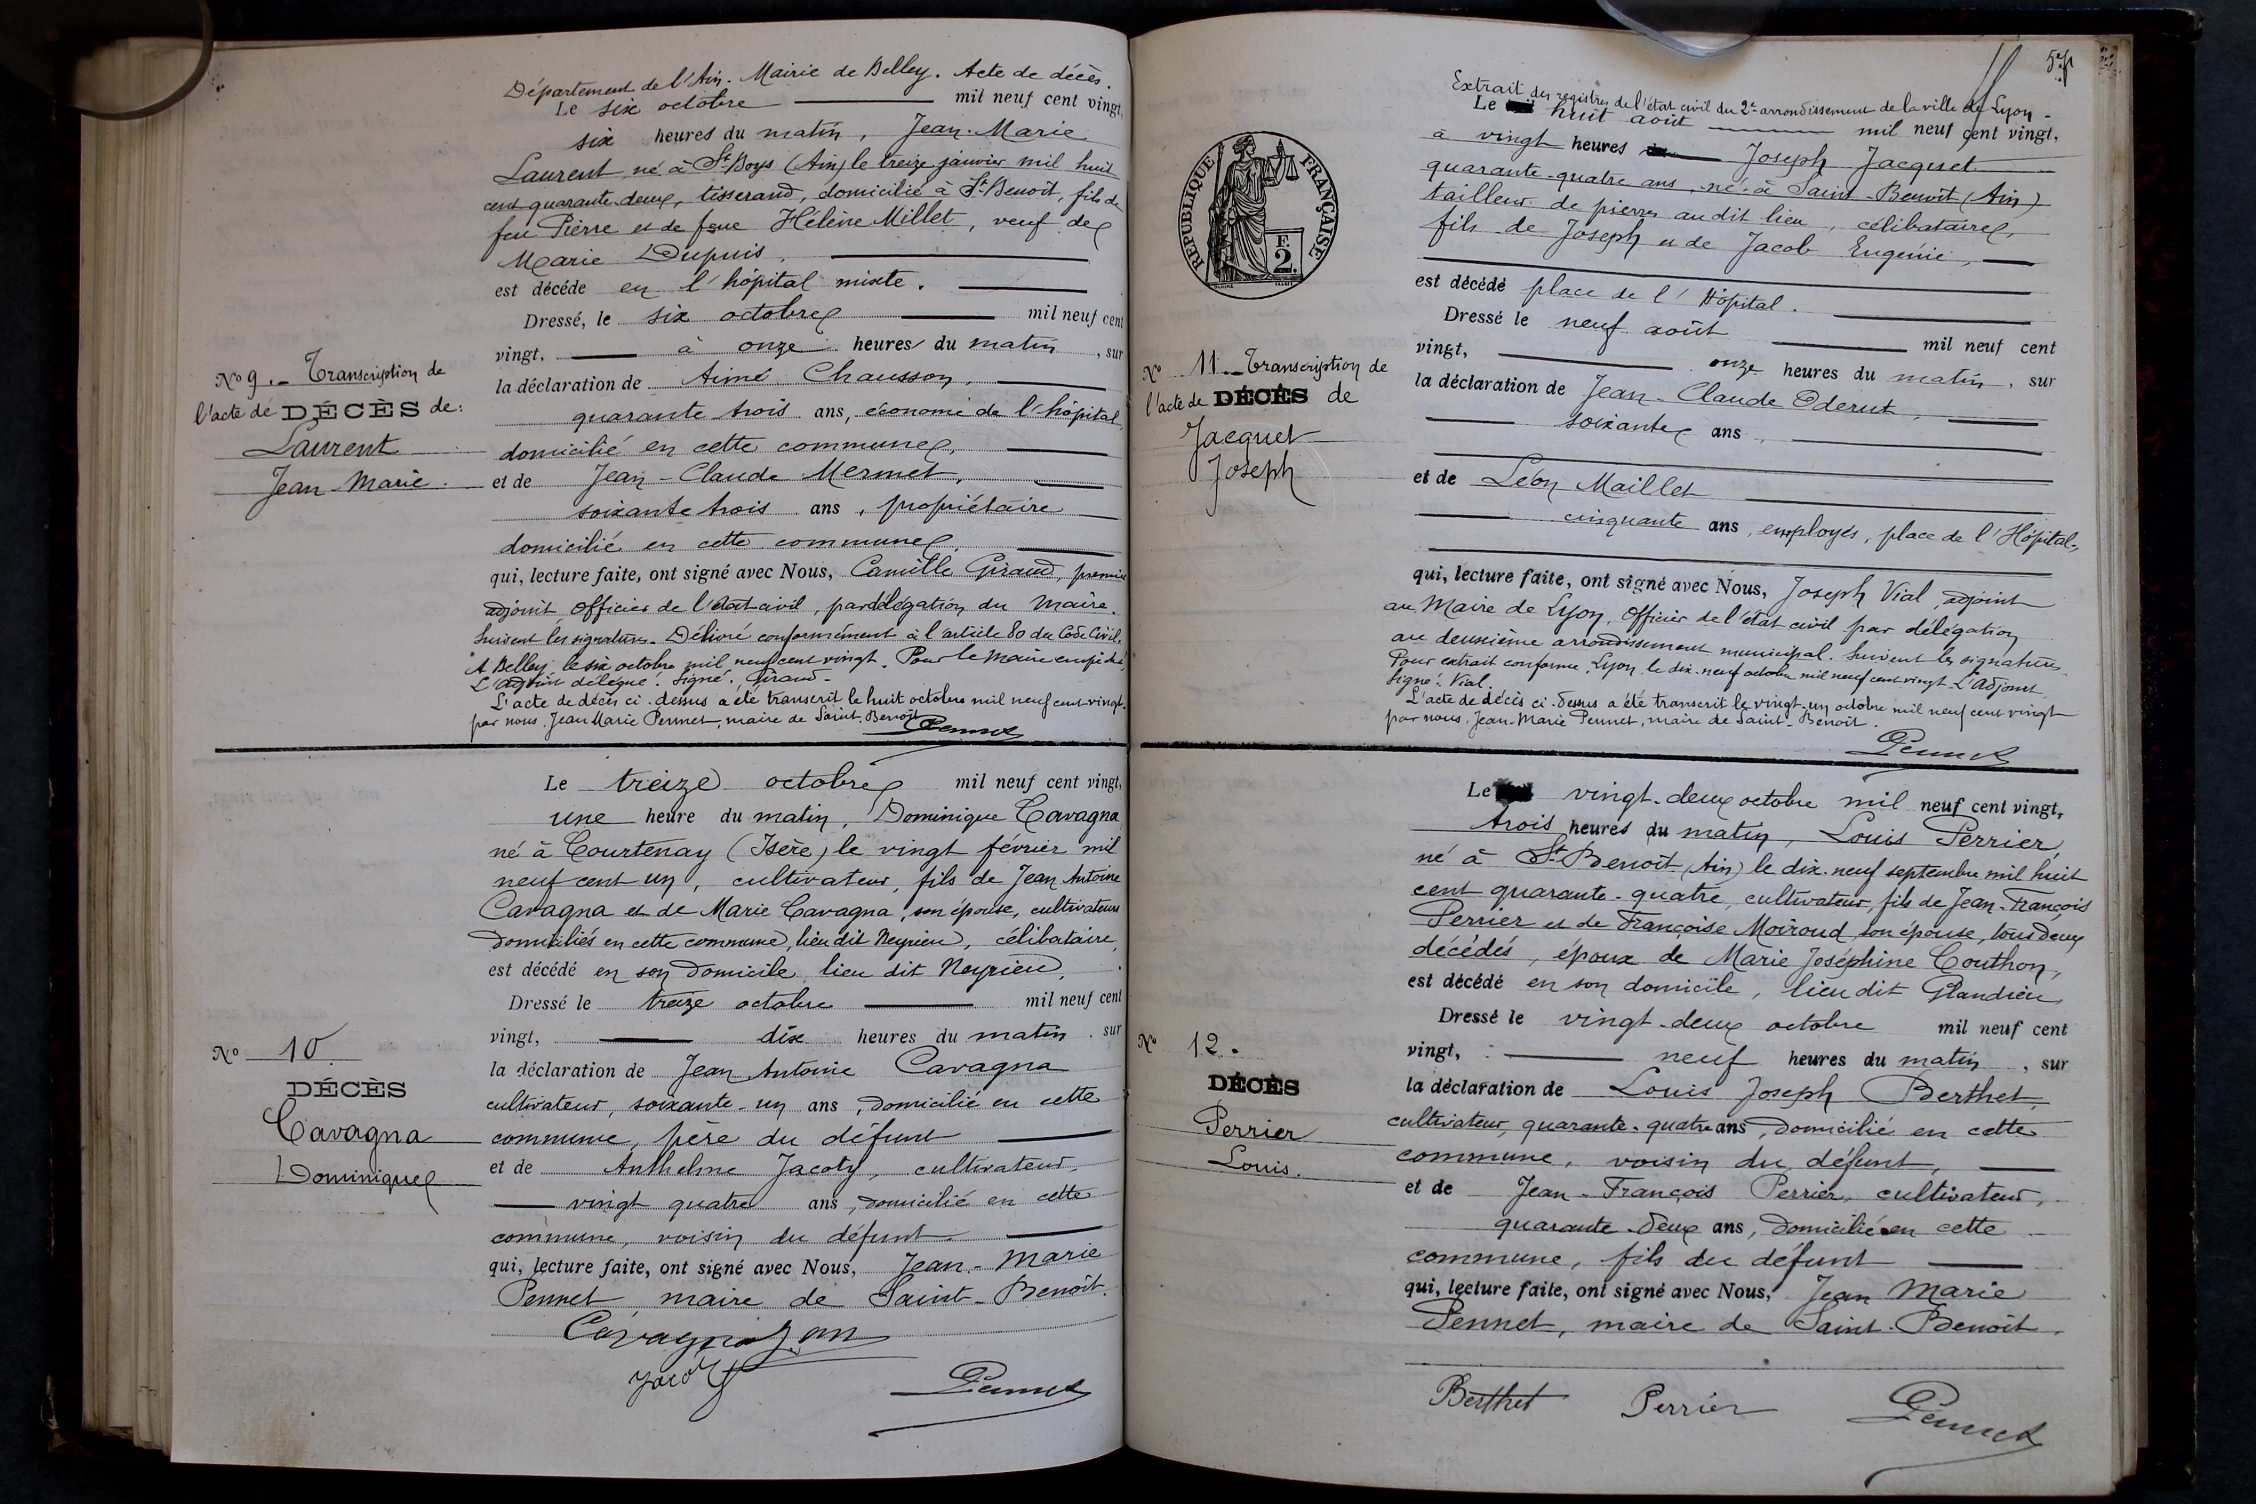 Département de l'Ain. Mairie de Belley. Acte de décès.
Le six octobre mil neuf cent vingt,
six heures du matin, Jean-Marie
Laurent né à St Boys (Ain) le treize janvier mil huit
cent quarante-deux, tisserand, domicilié à St-Benoit, fils de
feu Pierre et de feue Hélène Millet, veuf de
Marie Dupuis,
est décédé en l'hôpital mixte.
Dressé, le six octobre mil neuf cent
vingt, à onze heures du matin, sur
No 9. - Transcription de
l'acte de DÉCÈS de:
Laurent
Jean-Marie.
la déclaration de Aimé Chausson,
quarante trois ans, économe de l'hôpital,
domicilié en cette commune,
et de Jean-Claude Mermet,
soixante trois ans, propriétaire
domicilié en cette commune,
qui, lecture faite, ont signé avec Nous, Camille Giraud, premier
adjoint, officier de l'état civil, par délégation du Maire.
Suivent les signatures. Délivré conformément à l'article 80 du Code Civil.
A Belley, le six octobre mil neuf cent vingt. Pour le Maire empêché,
L'adjoint délégué. Signé: Giraud-
L'acte de décès ci-dessus a été transcrit le huit octobre mil neuf cent vingt.
par nous, Jean Marie Pennet, maire de Saint-Benoit.
Pennet
Le treize octobre mil neuf cent vingt,
une heure du matin, Dominique Cavagna
né à Courtenay (Isère) le vingt février mil
neuf cent un, cultivateur, fils de Jean Antoine
Cavagna et de Marie Cavagna, son épouse, cultivateurs
domiciliés en cette commune, lieu dit Neyrieu, célibataire,
est décédé en son domicile lieu dit Neyrieu,
Dressé le treize octobre mil neuf cent
vingt, dix heures du matin, sur
No 10
DÉCÈS
Cavagna
Dominique
la déclaration de Jean Antoine Cavagna
cultivateur, soixante-un ans, domicilié en cette
commune, père du défunt
et de Anthelme Jacoty, cultivateur,
vingt quatre ans, domicilié en cette
commune, voisin du défunt.
qui, lecture faite, ont signé avec Nous, Jean-Marie
Pennet maire de Saint-Benoit.
Cavagna Jean
Jacoty
Pennet
5e
Extrait des registres de l'état civil du 2e arrondissement de la ville de Lyon -
Le huit août mil neuf cent vingt,
à vingt heures Joseph Jacquet
quarante-quatre ans, né à Saint-Benoit (Ain)
tailleur de pierres audit lieu, célibataire,
fils de Joseph et de Jacob Eugénie,
est décédé place de l'Hôpital.
Dressé le neuf août mil neuf cent
vingt, onze heures du matin, sur
RÉPUBLIQUE FRANÇAISE
F
2.
No 11. - Transcription de
l'acte de DÉCÈS de
Jacquet
Joseph
la déclaration de Jean-Claude Oderut,
soixante ans,
et de Léon Maillet
cinquante ans, employés, place de l'Hôpital,
qui, lecture faite, ont signé avec Nous, Joseph Vial, adjoint
au Maire de Lyon, Officier de l'état civil par délégation
au deuxième arrondissement municipal. Suivent les signatures.
Pour extrait conforme. Lyon, le dix-neuf octobre mil neuf cent vingt. L'adjoint
Signé: Vial.
L'acte de décès ci-dessus a été transcrit le vingt-un octobre mil neuf cent vingt
par nous, Jean-Marie Pennet, maire de Saint-Benoit.
Pennet
Le vingt-deux octobre mil neuf cent vingt,
trois heures du matin, Louis Perrier,
né à St-Benoit (Ain) le dix-neuf septembre mil huit
cent quarante-quatre, cultivateur, fils de Jean-François
Perrier et de Françoise Moiroud son épouse, tous deux
décédés, époux de Marie Joséphine Couthon,
est décédé en son domicile, lieu dit Glandieu
Dressé le vingt-deux octobre mil neuf cent
vingt, neuf heures du matin, sur
No 12.
DÉCÈS
Perrier
Louis.
la déclaration de Louis Joseph Berthet,
cultivateur, quarante-quatre ans, domicilié en cette
commune, voisin du défunt,
et de Jean-François Perrier, cultivateur,
quarante-deux ans, domicilié en cette
commune, fils du défunt
qui, lecture faite, ont signé avec Nous, Jean Marie
Pennet, maire de Saint-Benoit.
Berthet Perrier Pennet